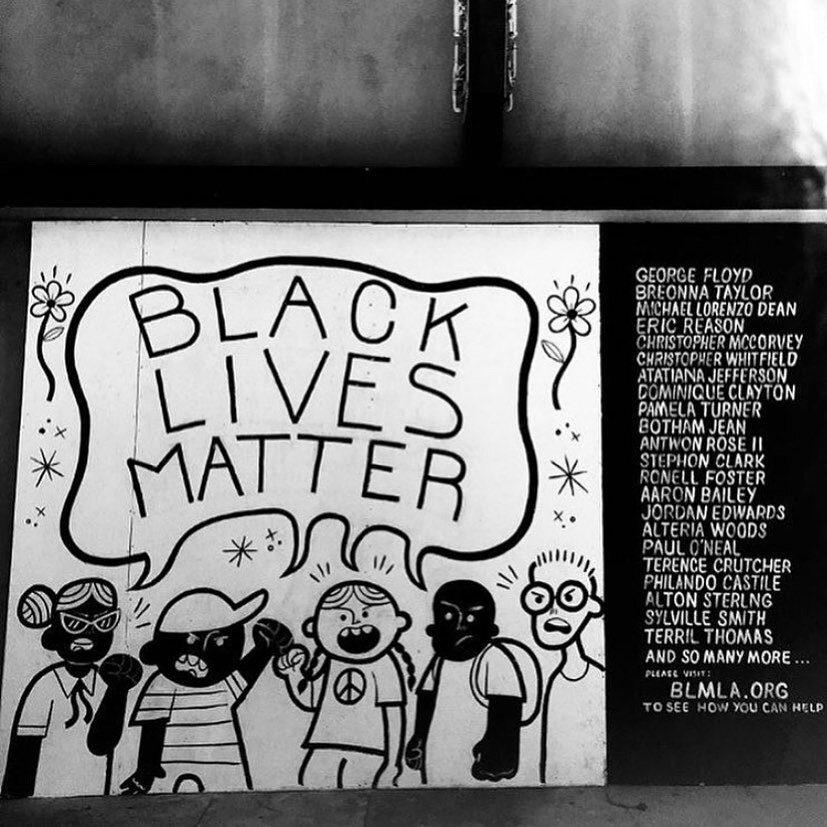 BLACK
LIVES
MATTER
GEORGE FLOYD
BREONNA TAYLOR
MICHAEL LORENZO DEAN
ERIC REASON
CHRISTOPHER MCCORVEY
CHRISTOPHER WHITFIELD
ATATIANA JEFFERSON
DOMINIQUE CLAYTON
PAMELA TURNER
BOTHAM JEAN
ANTWON ROSE II
STEPHON CLARK
RONELL FOSTER
AARON BAILEY
JORDAN EDWARDS
ALTERIA WOODS
PAUL O'NEAL
TERENCE CRUTCHER
PHILANDO CASTILE
ALTON STERLNG
SYLVILLE SMITH
TERRIL THOMAS
AND SO MANY MORE...
PLEASE VISIT:
BLMLA.ORG
TO SEE HOW YOU CAN HELP